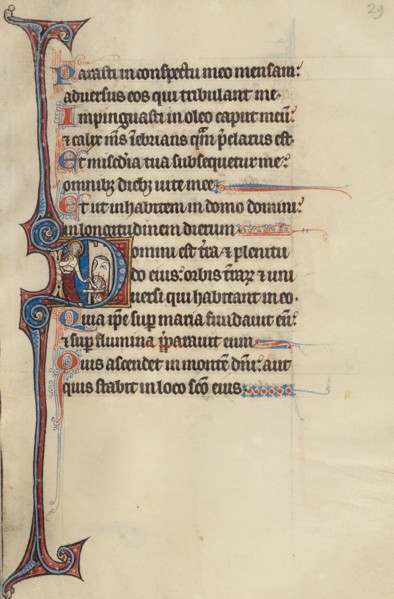 29
Parasti in conspectu meo mensam:
adversus eos qui tribulant me.
Impinguasti in oleo caput meū:
⁊ calix m̄s īebrians q̄m p̄clarus est.
Et mis̄c̄dia tua subsequetur me:
omnibꝫ diebꝫ vite mee.
Et ut inhabitem in domo domini:
in longitudinem dierum
Domini est t̄ra ⁊ plenitu
do eius: orbis t̄raꝝ ⁊ uni
versi qui habitant in eo.
Quia ip̄e sup̄ maria fundavit eū:
⁊ sup̄ flumina p̄paravit eum.
Quis ascendet in montē dn̄i: aut
quis stabit in loco sc̄o eius